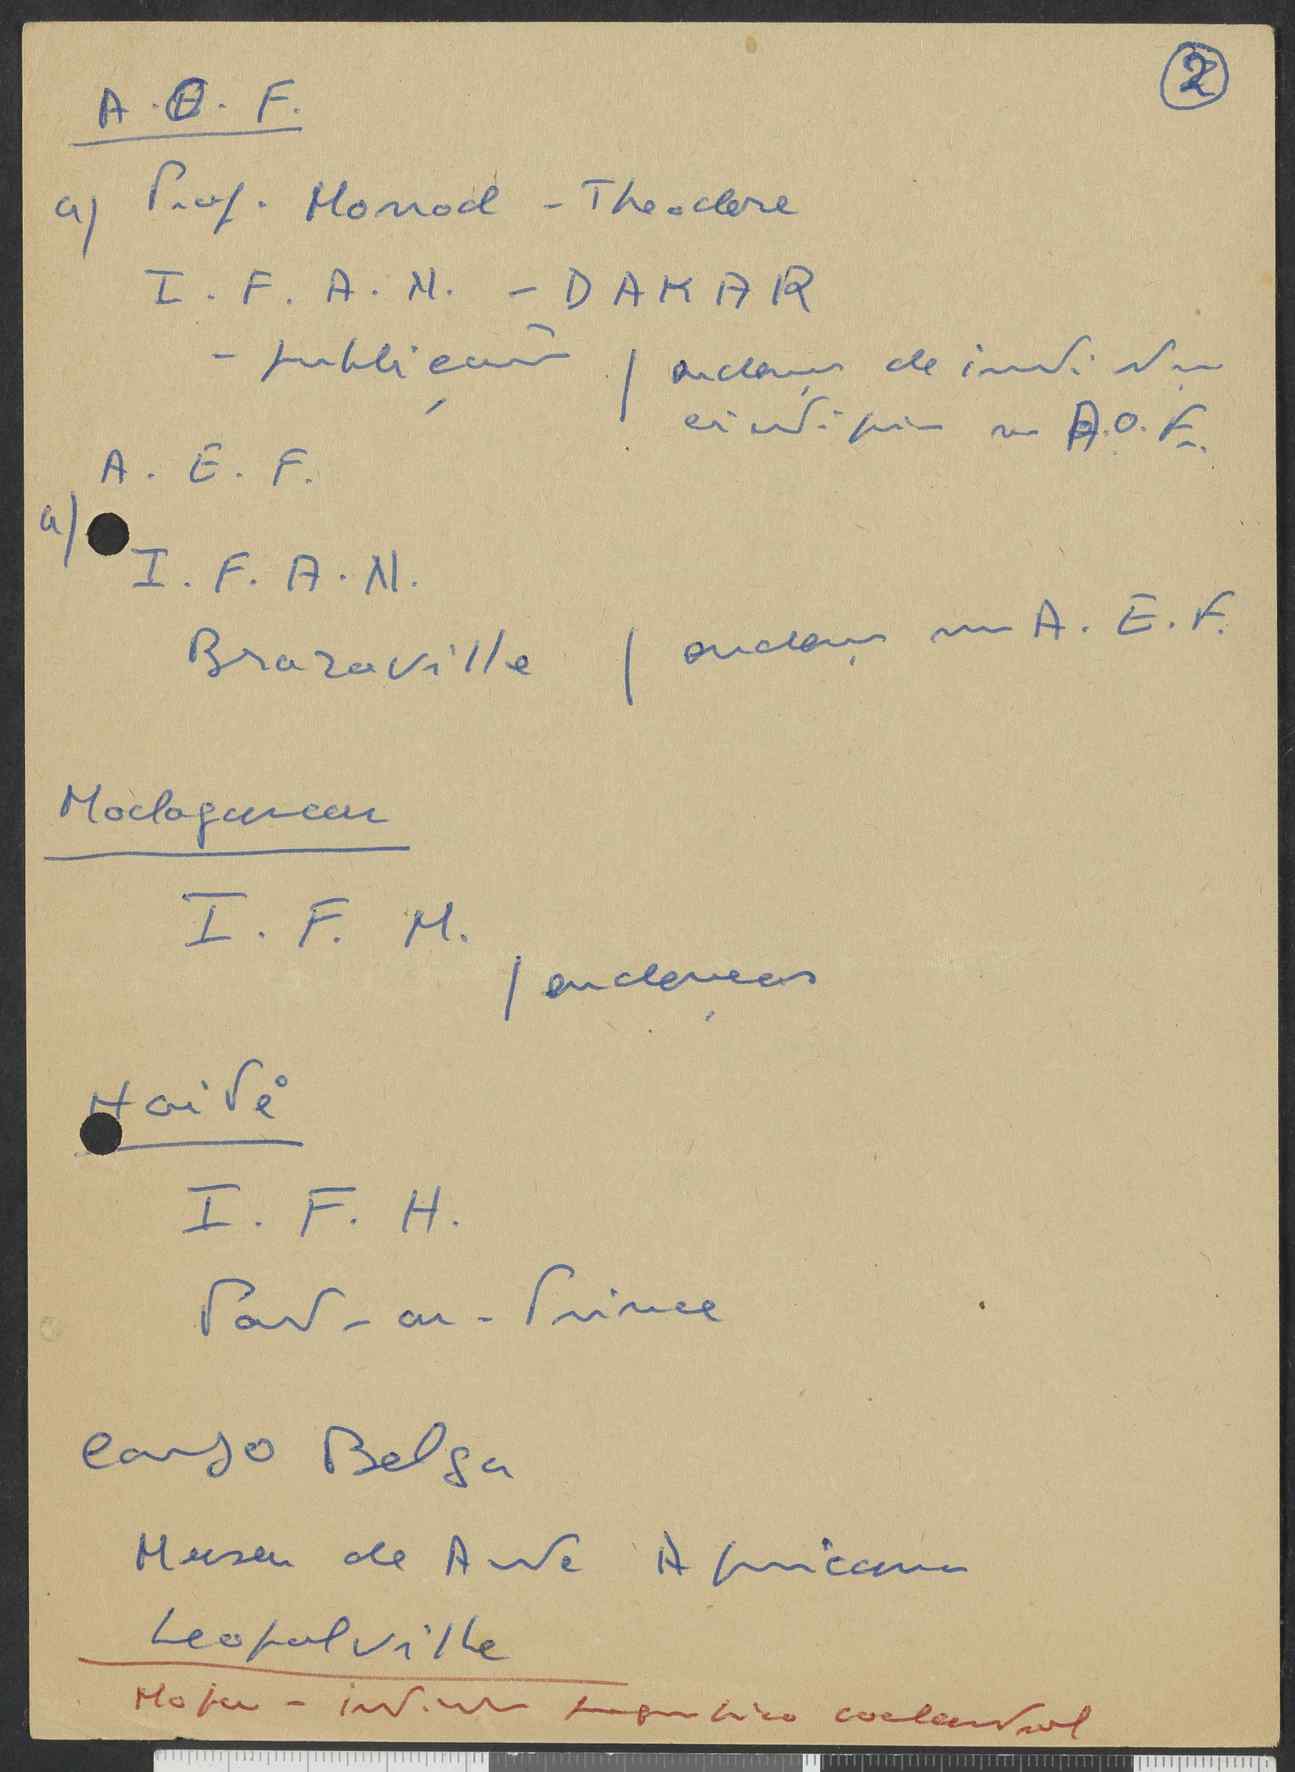 2
A.O.F.
a) Prof. Monod - Theodore
I.F.A.N. - DAKAR
- publicações / endereços de instituições
científicas na A.O.F.
A.E.F.
a)
I.F.A.N.
Brazaville / endereços na A.E.F.
Madagascar
I.F.M.
/ endereços
Haité
I.F.H.
Port-au-Prince
Congo Belga
Museu de Arte Africana
Leopolville
Mapa - linguistico